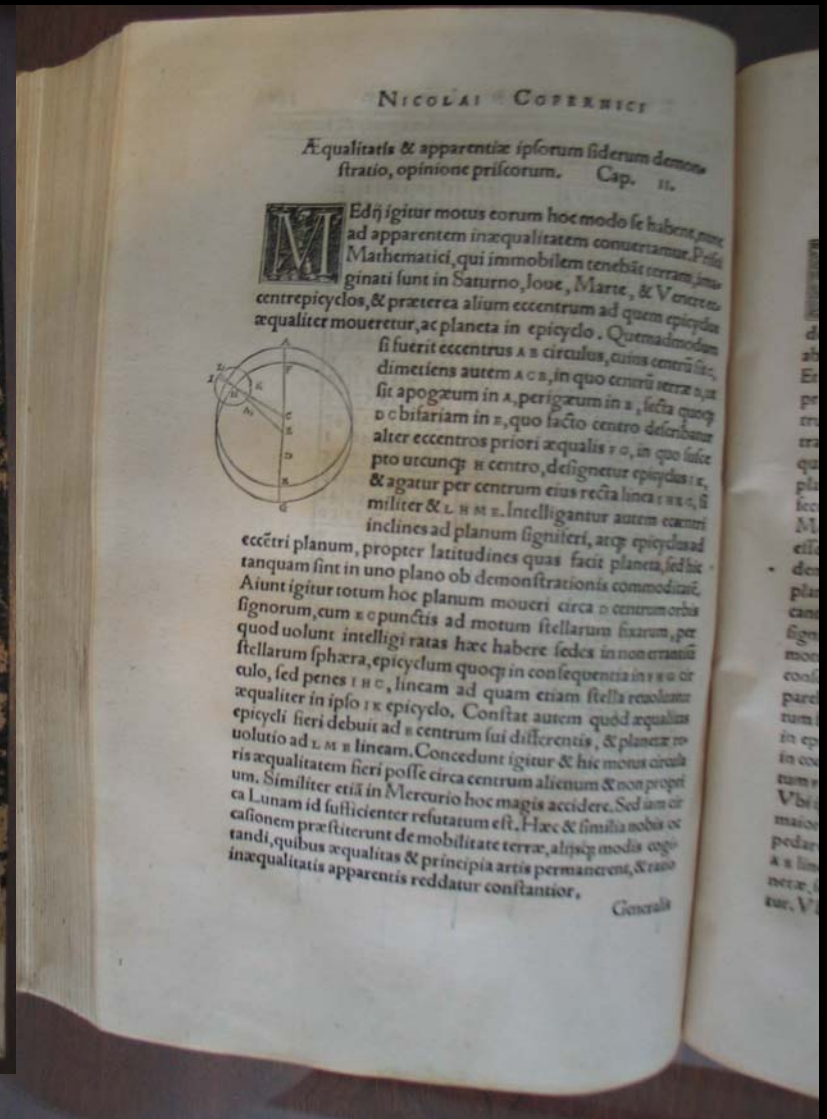 NICOLAI COPERNICI
Æqualitatis & apparentiæ ipſorum ſiderum demon⸗
ſtratio, opinione priſcorum. Cap. II.
MEdij igitur motus eorum hoc modo ſe habent, nunc
ad apparentem inæqualitatem conuertamur. Priſci
Mathematici, qui immobilem tenebãt terram, ima⸗
ginati ſunt in Saturno, Ioue, Marte, & Venere ec⸗
centrepicyclos, & præterea alium eccentrum ad quem epicyclus
æqualiter moueretur, ac planeta in epicyclo. Quemadmodum
ſi fuerit eccentrus A B circulus, cuius centrũ ſit C,
dimetiens autem A C B, in quo centrũ terræ D, ut
ſit apogæum in A, perigæum in B, ſecta quoq̃
D C bifariam in E, quo facto centro deſcribatur
alter eccentros priori æqualis F G, in quo ſuſce
pto utcunq̃ H centro, deſignetur epicyclus I K,
& agatur per centrum eius recta linea I H K C, ſi
militer & L H M E. Intelligantur autem eccentri
inclines ad planum ſigniferi, atq̃ epicyclus ad
eccẽtri planum, propter latitudines quas facit planeta, ſed hic
tanquam ſint in uno plano ob demonſtrationis commoditatẽ.
Aiunt igitur totum hoc planum moueri circa D centrum orbis
ſignorum, cum E C punctis ad motum ſtellarum fixarum, per
quod uolunt intelligi ratas hæc habere ſedes in non errantiũ
ſtellarum ſphæra, epicyclum quoq̃ in conſequentia in F H G cir
culo, ſed penes I H C, lineam ad quam etiam ſtella reuoluatur
æqualiter in ipſo I K epicyclo. Conſtat autem quòd æqualitas
epicycli fieri debuit ad E centrum ſui differentis, & planetæ re⸗
uolutio ad L M E lineam. Concedunt igitur & hic motus circula
ris æqualitatem fieri poſſe circa centrum alienum & non propri
um. Similiter etiã in Mercurio hoc magis accidere. Sed iam cir
ca Lunam id ſufficienter refutatum eſt. Hæc & ſimilia nobis oc
caſionem præſtiterunt de mobilitate terræ, alijsq̃ modis cogi⸗
tandi, quibus æqualitas & principia artis permanerent, & ratio
inæqualitatis apparentis reddatur conſtantior.
Generalis
A
F
L
I
K
H
M
C
E
D
B
G